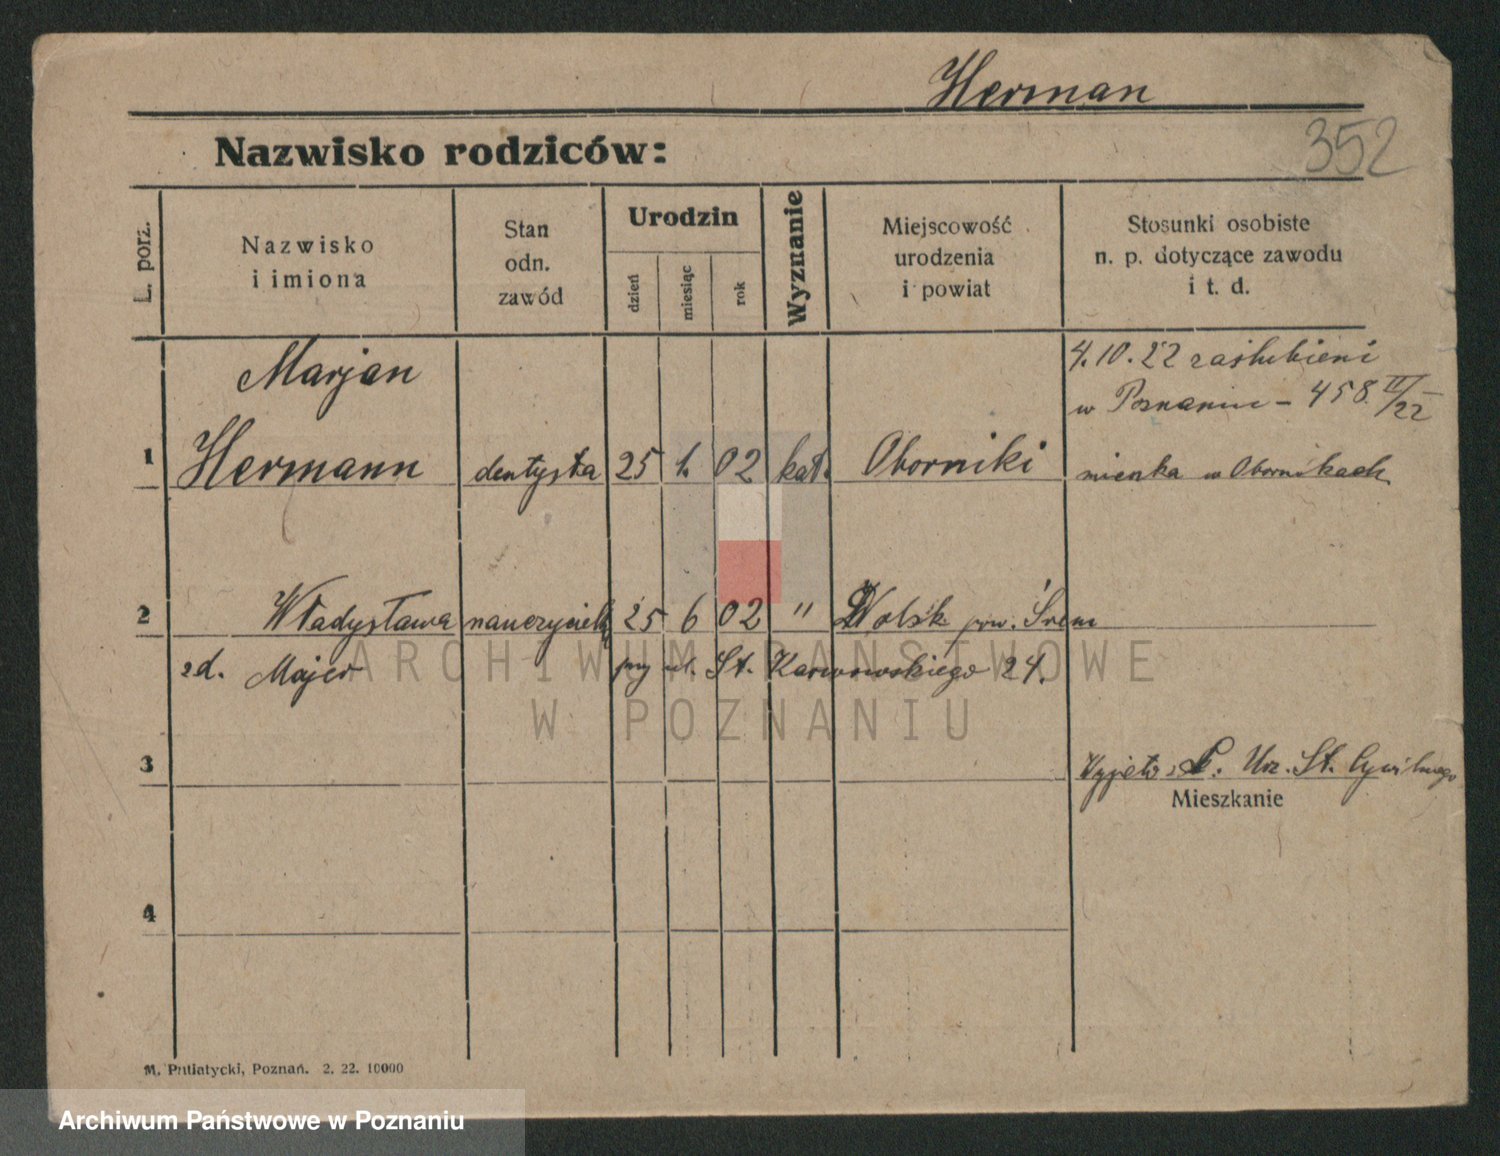 Herman
352
Nazwisko rodziców:
L. porz.
Nazwisko
i imiona
Stan
odn.
zawód
Urodzin
dzień
miesiąc
rok
Wyznanie
Miejscowość
urodzenia
i powiat
Stosunki osobiste
n. p. dotyczące zawodu
i t. d.
4.10.22 zaślubieni
w Poznaniu – 458 II/22
Marjan
1 Hermann dentysta 25 1. 02 kat. Oborniki mieszka w Obornikach
2 Władysława nauczycielką 25 6 02 " Dolsk pow. Śrem
zd. Majer przy ul. St. Karwowskiego 24.
3 Urz. St. Cywilnego
Mieszkanie
4
M. Putiatycki, Poznań. 2. 22. 10000
ARCHIWUM PAŃSTWOWE
W POZNANIU
Archiwum Państwowe w Poznaniu